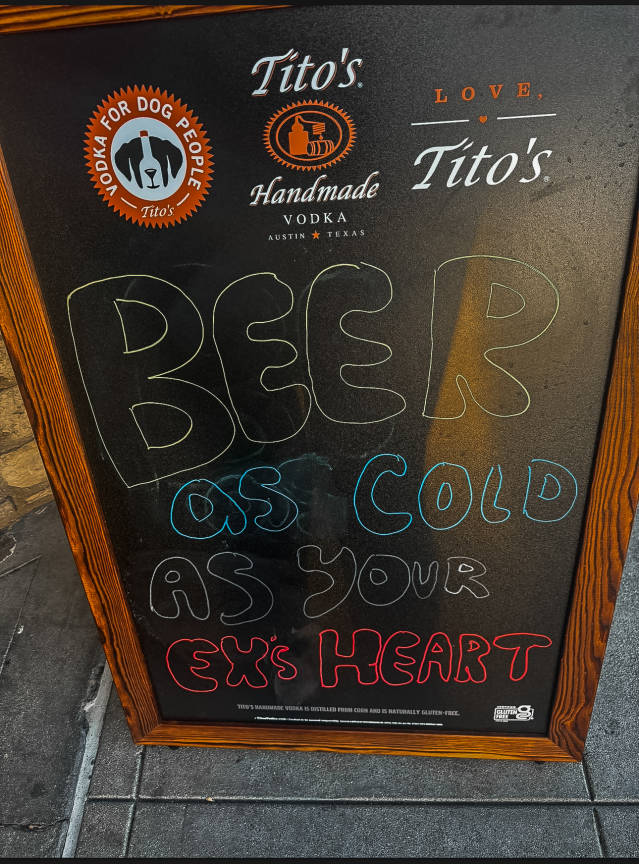 VODKA FOR DOG PEOPLE
Tito's
Tito's®
Handmade
VODKA
AUSTIN ★ TEXAS
LOVE,
Tito's®
BEER
as COLD
AS YOUR
EX's HEART
TITO'S HANDMADE VODKA IS DISTILLED FROM CORN AND IS NATURALLY GLUTEN-FREE.
GLUTEN
FREE